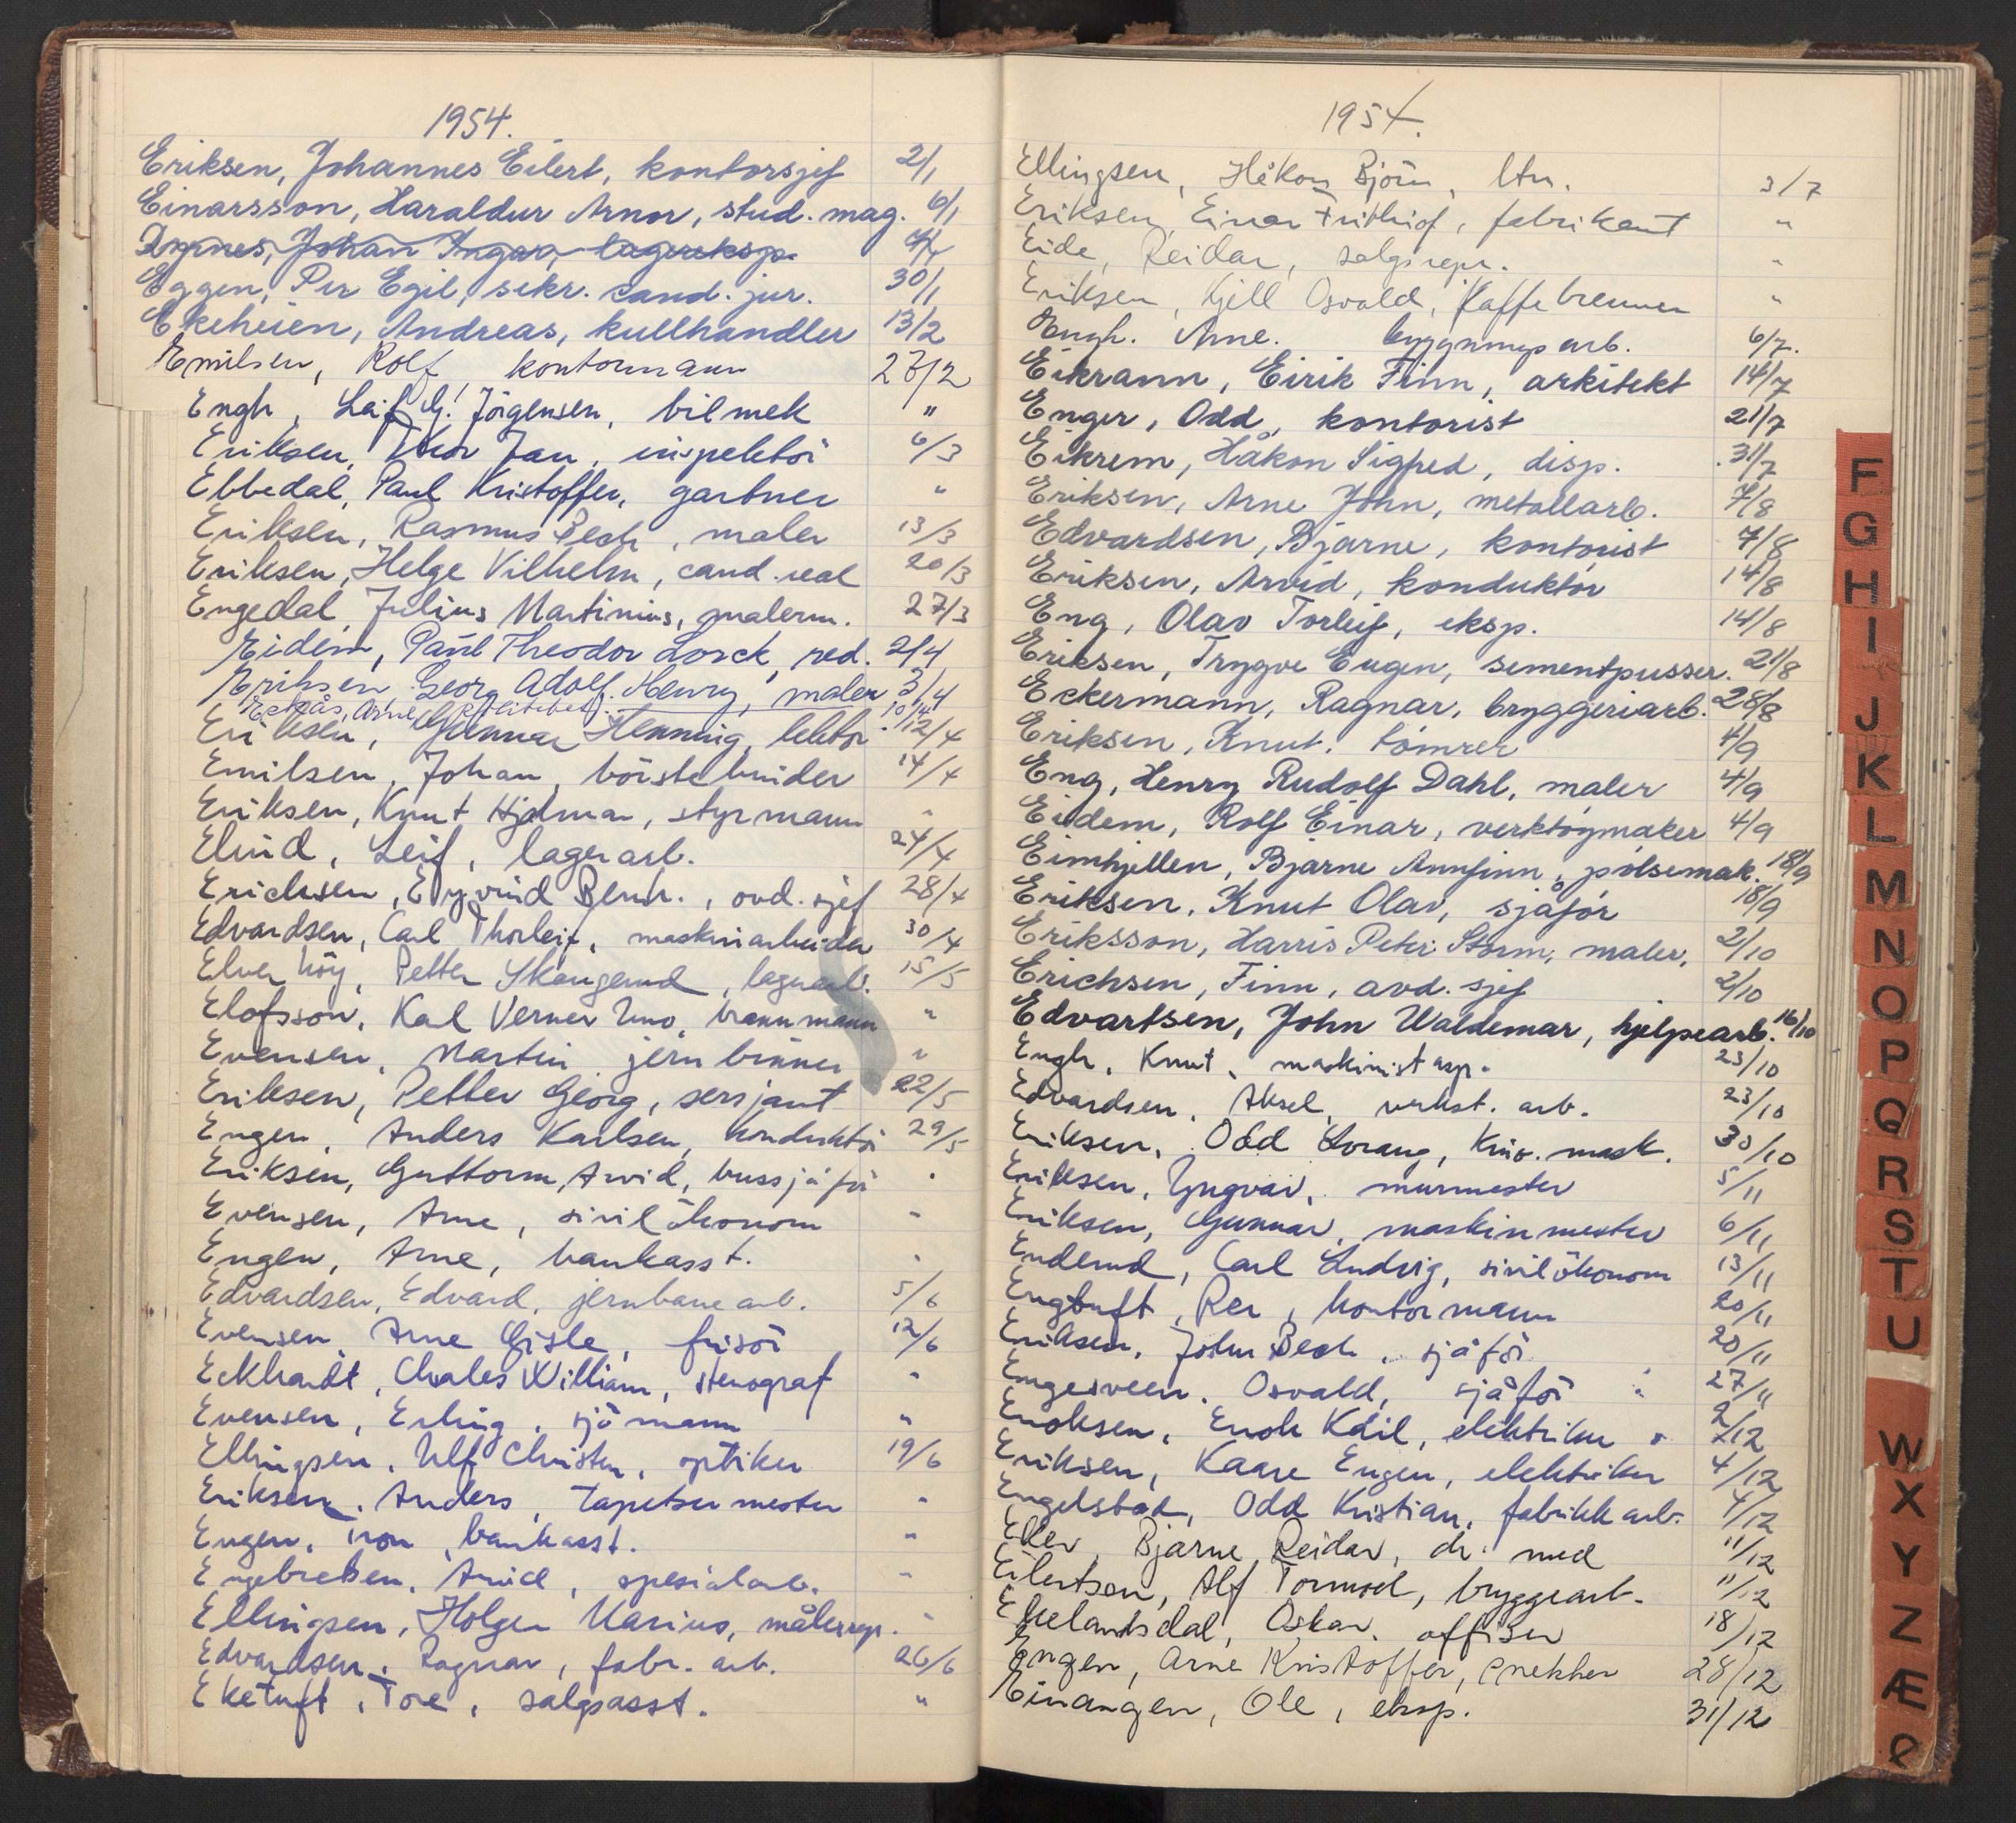 1954.
Eriksen, Johannes Eilert, kontorsjef 2/1
Einarsson, Haraldur Arnor, stud. mag. 6/1
Johan Ingar, lagereksp.
Eggen, Per Egil, sekr. cand. jur. 30/1
Ekeheien, Andreas, kullhandler 13/2
Emilsen, Rolf kontormann 27/2
Engh, Leif G. Jörgensen, bilmek "
Eriksen, Thor Jan, inspektör 6/3
Ebbedal, Paul Kristoffer, gartner "
Eriksen, Rasmus Bech, maler 13/3
Eriksen, Helge Vilhelm, cand. real 20/3
Engedal, Julius Martinius, malerm. 27/3
Eidem, Paul Theodor Lorck, red. 2/4
Eriksen, Georg Adolf Henry, maler 3/4
Arne 10/4
Eriksen, Gunnar Henning, lektor 12/4
Emilsen, Johan, börstebinder 14/4
Eriksen, Knut Hjalmar, styrmann "
Elind, Leif, lagerarb. 24/4
Erichsen, Eyvind Bernh., avd. sjef 28/4
Edvardsen, Carl Thorleif, maskinarbeider 30/4
Elverhöy, Petter Skaugerud, lagerarb. 15/5
Elofsson, Karl Verner Uno, brannmann "
Evensen, Martin jernbinder "
Eriksen, Petter Georg, sersjant 22/5
Engen, Anders Karlsen, konduktör 29/5
Eriksen, Guttorm Arvid, bussjåför "
Evensen, Arne, sivilökonom "
Engen, Arne, bankasst. "
Edvardsen, Edvard, jernbanearb. 5/6
Evensen Arne Gisle, frisör 12/6
Eckhardt, Charles William, stenograf "
Evensen, Erling, sjömann "
Ellingsen, Ulf Christen, optiker 19/6
Eriksen, Anders, tapetsermester "
Engen, Iron, bankasst. "
Engebretsen, Arvid, spesialarb. "
Ellingsen, Holger Marius, målerrep. "
Edvardsen, Ragnar, fabr. arb. 26/6
Eketuft, Tore, salgsasst. "
1954.
Ellingsen, Håkon Björn, ltn. 3/7
Eriksen, Einar Frithiof, fabrikant "
Eide, Reidar, salgsrepr. "
Eriksen, Kjell Osvald, Kaffebrenner "
Engh. Arne. bygningsarb. 6/7.
Eikrann, Eirik Finn, arkitekt 14/7
Enger, Odd, kontorist 21/7
Eikrem, Håkon Sigfred, disp. 31/7
Eriksen, Arne John, metallarb. 7/8
Edvardsen, Bjarne, kontorist 7/8
Eriksen, Arvid, konduktör 14/8
Eng, Olav Torleif, eksp. 14/8
Eriksen, Trygve Eugen, sementpusser. 21/8
Eckermann, Ragnar, bryggeriarb. 28/8
Eriksen, Knut. tömrer 4/9
Eng, Henry Rudolf Dahl, maler 4/9
Eidem, Rolf Einar, verktöymaker 4/9
Eimhjellen, Bjarne Annfinn, pölsemak. 18/9
Eriksen, Knut Olav, sjåför 18/9
Eriksson, Harris Peter Storm, maler, 2/10
Erichsen, Finn, avd. sjef 2/10
Edvartsen, John Waldemar, hjelpearb. 16/10
Engh, Knut, maskinistasp. 23/10
Edvardsen, Aksel, verkst. arb. 23/10
Eriksen, Odd Lorang, Kino. mask. 30/10
Eriksen, Yngvar, murmester 5/11
Eriksen, Gunnar, maskinmester 6/11
Enderud, Carl Ludvig, sivilökonom 13/11
Engtuft, Per, kontormann 20/11
Eriksen, John Bech, sjåför 20/11
Engesveen, Osvald, sjåför 27/11
Enoksen, Enok Kåil, elektriker 2/12
Eriksen, Kaare Eugen, elektriker 4/12
Engelstad, Odd Kristian, fabrikkarb. 4/12
Eker, Bjarne Reidar, dr. med 11/12
Eilertsen, Alf Tormod, bryggearb. 11/12
Ekelandsdal, Oskar, offiser 18/12
Engen, Arne Kristoffer, snekker 28/12
Einangen, Ole, eksp. 31/12
F
G
H
I
J
K
L
M
N
O
P
Q
R
S
T
U
W
X
Y
Z
Æ
Ø